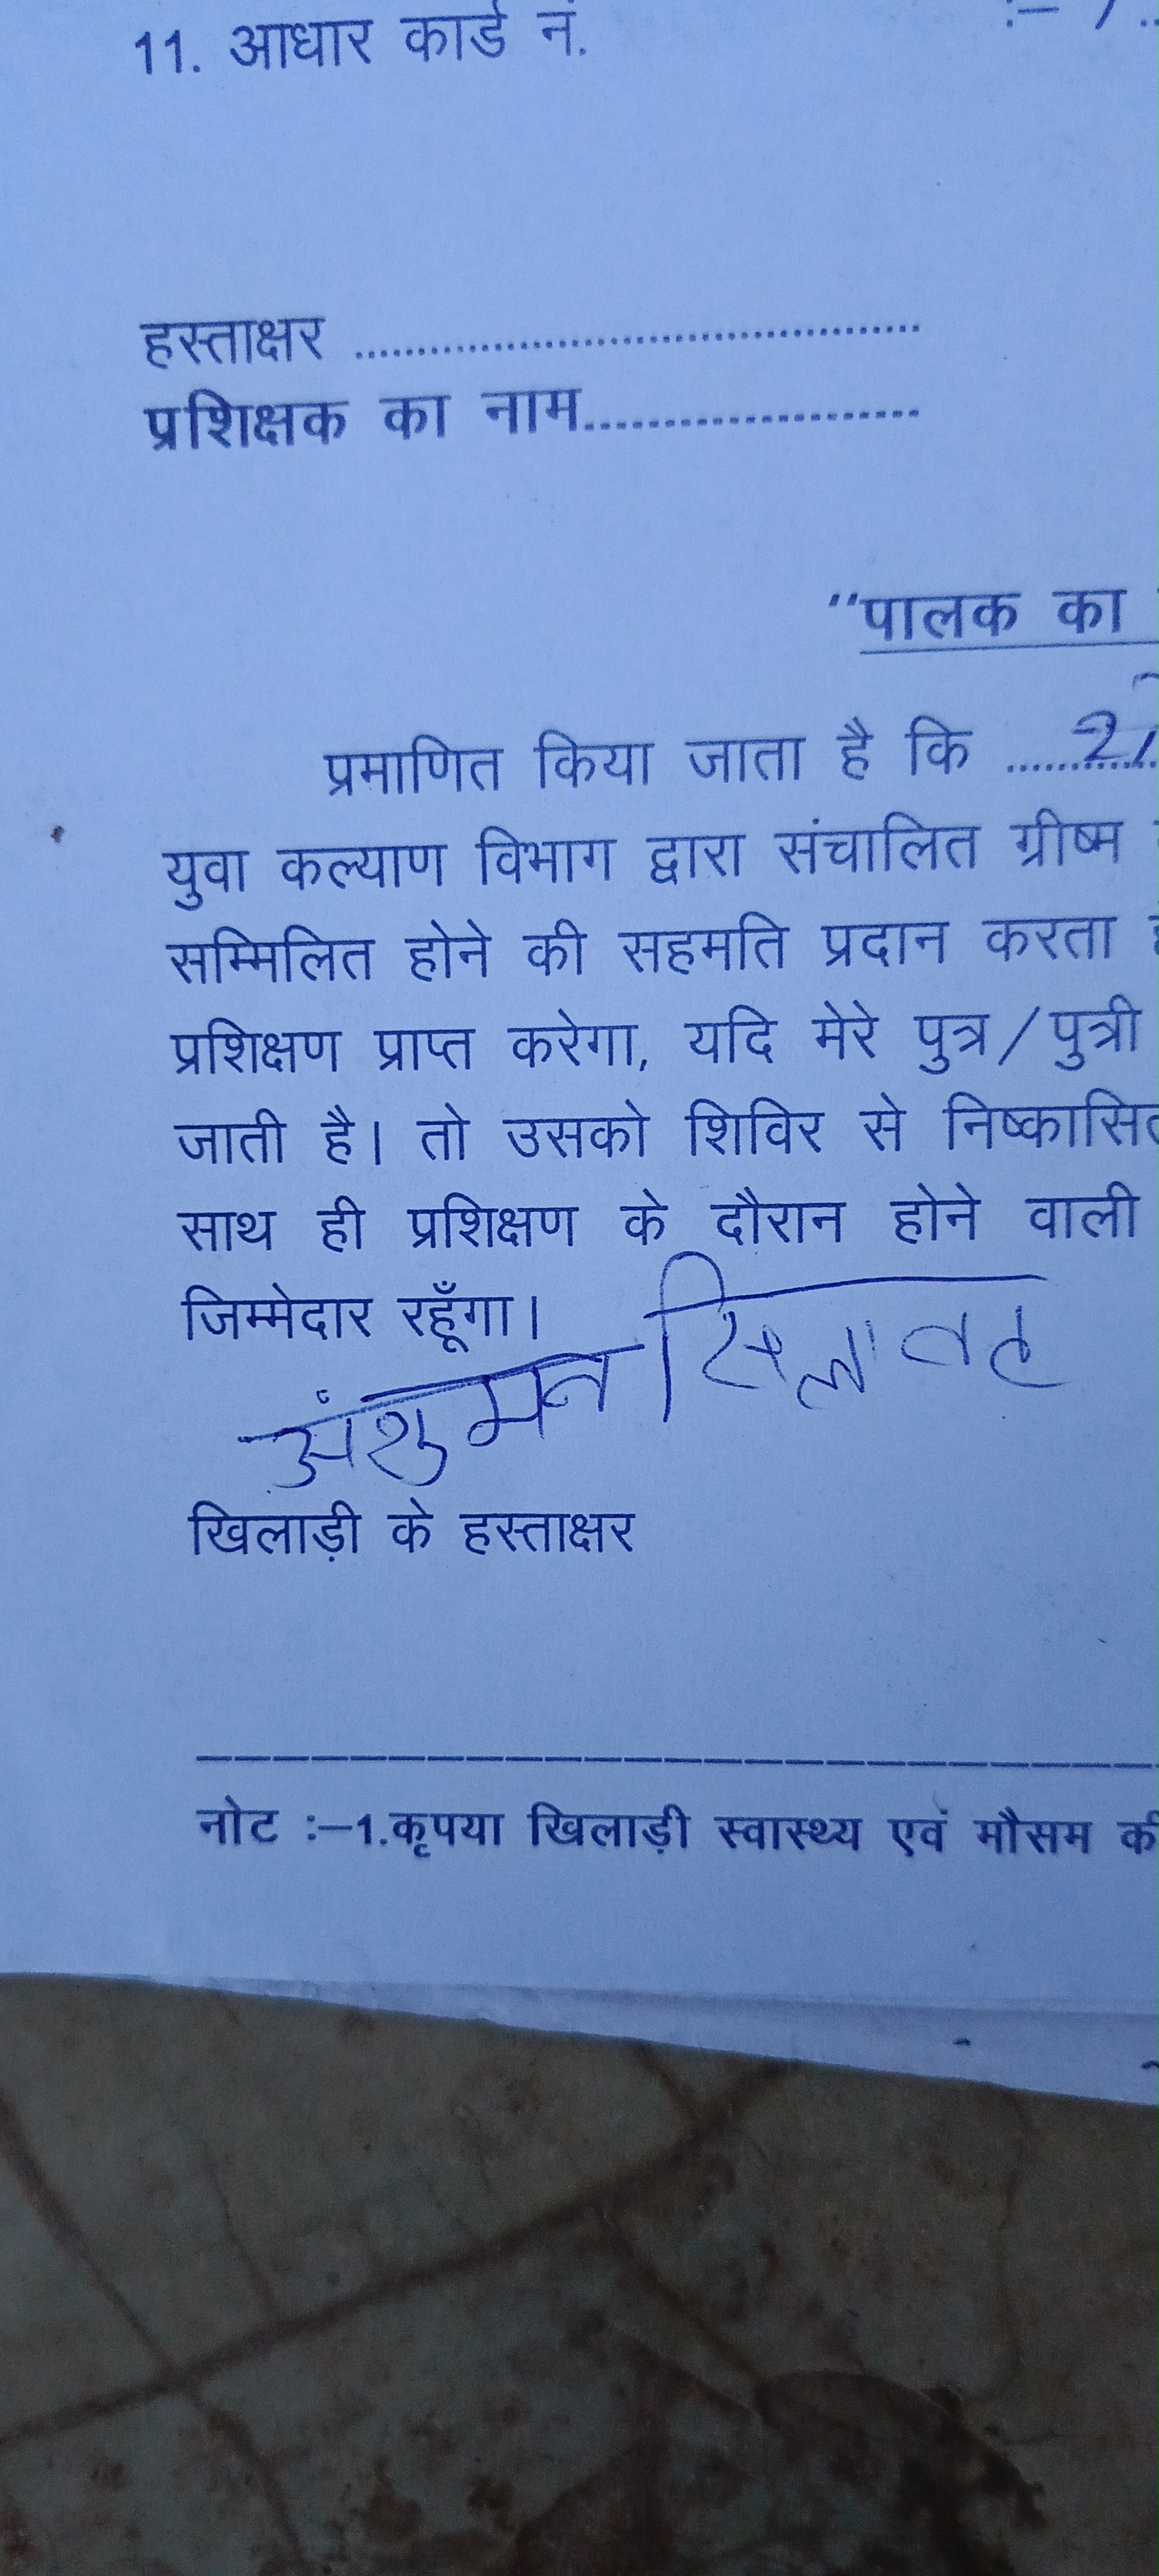 11. आधार कार्ड नं. :–
हस्ताक्षर ..........................................
प्रशिक्षक का नाम.....................
"पालक का
प्रमाणित किया जाता है कि ..........
युवा कल्याण विभाग द्वारा संचालित ग्रीष्म
सम्मिलित होने की सहमति प्रदान करता
प्रशिक्षण प्राप्त करेगा, यदि मेरे पुत्र/पुत्री
जाती है। तो उसको शिविर से निष्कासित
साथ ही प्रशिक्षण के दौरान होने वाली
जिम्मेदार रहूँगा।
अंशुमन सिलावट
खिलाड़ी के हस्ताक्षर
नोट :–1.कृपया खिलाड़ी स्वास्थ्य एवं मौसम की